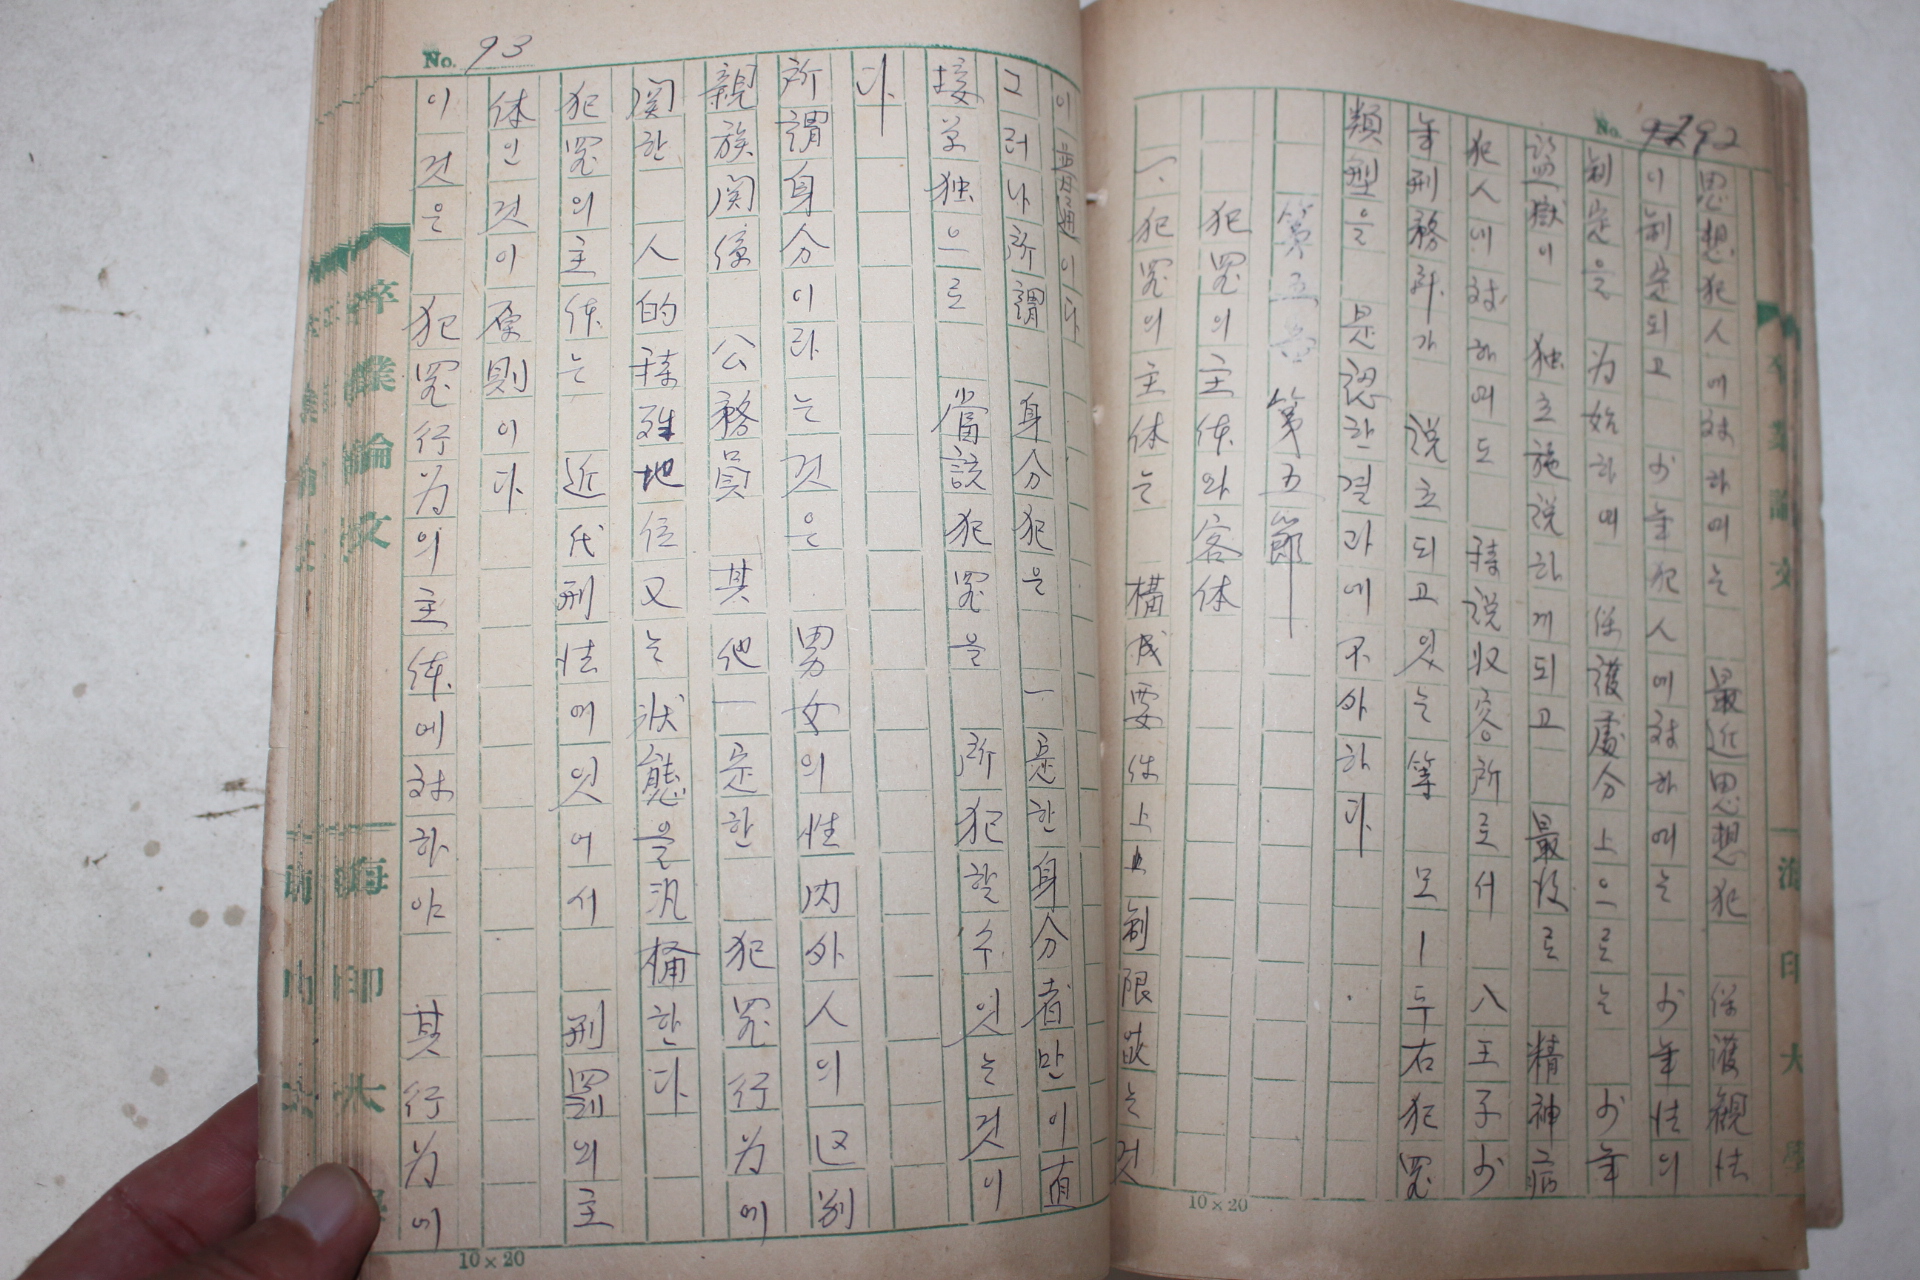 No. 92
思想犯人에対하여는 最近思想犯 保護観法
이制定되고 少年犯人에対하여는 少年法의
制定을 为始하여 保護處分上으로는 少年
監獄이 独立施設하게되고 最後로 精神病
犯人에対하여도 特設収容所로서 八王子少
年刑務所가 設立되고있는等 모ㅣ두右犯罪
類型을 是認한결과에不外하다.
第五節
犯罪의主体와客体
一、犯罪의主体는 構成要件上 制限없는것
10×20
No. 93
이普通이다
그러나所謂 身分犯은 一定한身分者만이直
接单独으로 當該犯罪을 所犯할수있는것이
다.
所謂身分이라는것은 男女의性 内外人의区別
親族関係 公務員 其他一定한 犯罪行为에
関한 人的特殊地位又는状態을汎稱한다.
犯罪의主体는 近代刑法에있어서 刑罰의主
体인것이原則이다.
이것은 犯罪行为의主体에対하야 其行为에
10×20
卒業論文